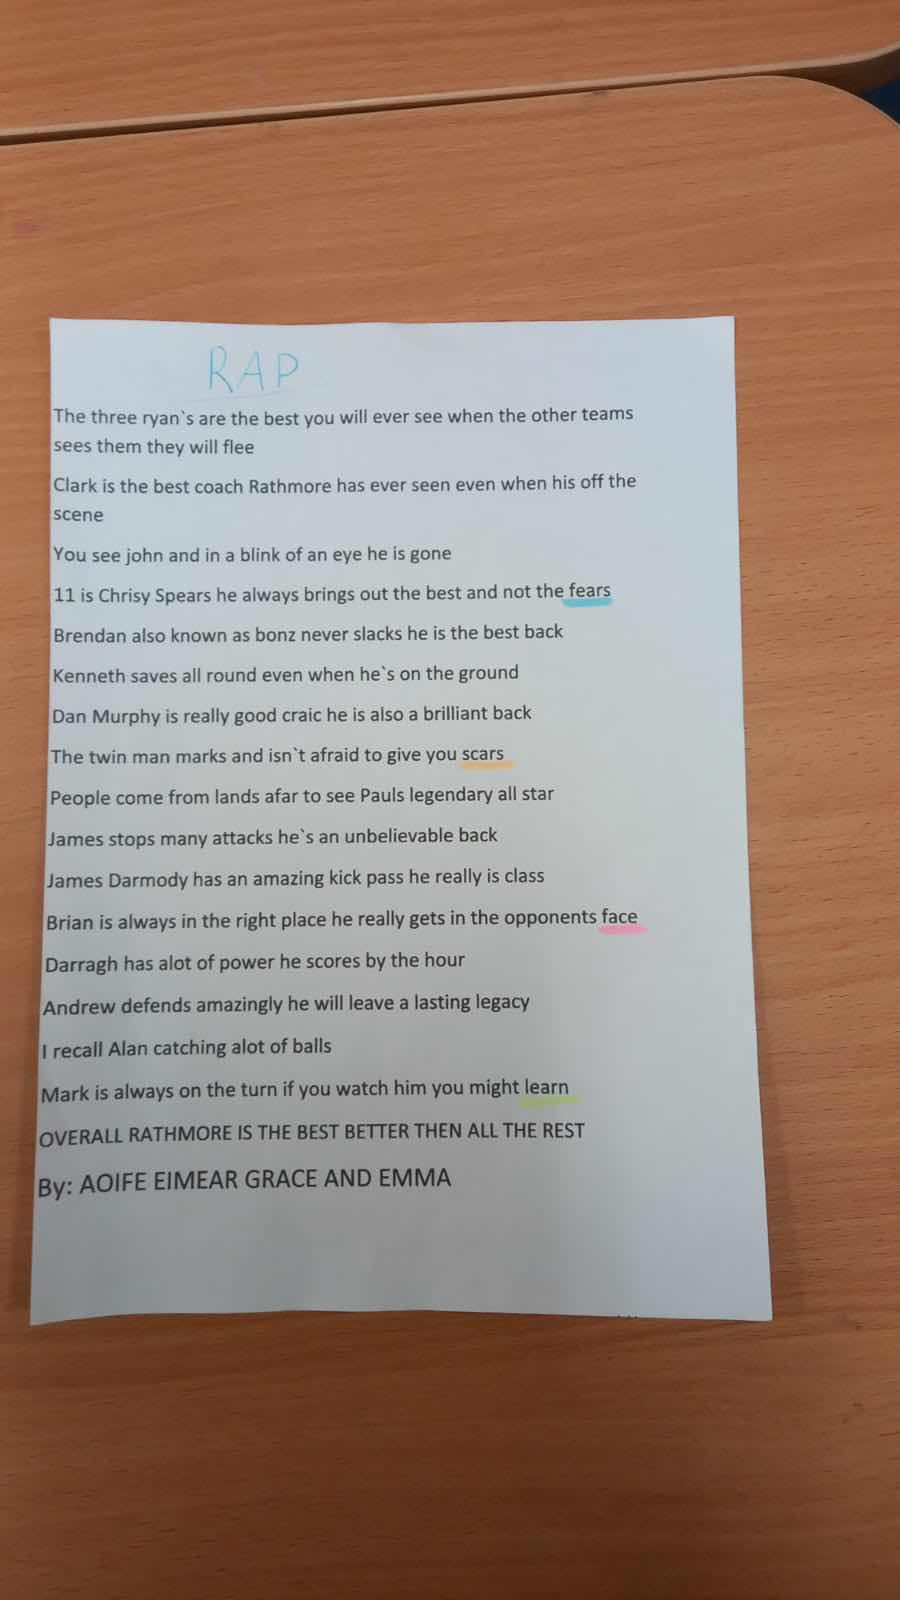 RAP
The three ryan`s are the best you will ever see when the other teams
sees them they will flee
Clark is the best coach Rathmore has ever seen even when his off the
scene
You see john and in a blink of an eye he is gone
11 is Chrisy Spears he always brings out the best and not the fears
Brendan also known as bonz never slacks he is the best back
Kenneth saves all round even when he`s on the ground
Dan Murphy is really good craic he is also a brilliant back
The twin man marks and isn`t afraid to give you scars
People come from lands afar to see Pauls legendary all star
James stops many attacks he`s an unbelievable back
James Darmody has an amazing kick pass he really is class
Brian is always in the right place he really gets in the opponents face
Darragh has alot of power he scores by the hour
Andrew defends amazingly he will leave a lasting legacy
I recall Alan catching alot of balls
Mark is always on the turn if you watch him you might learn
OVERALL RATHMORE IS THE BEST BETTER THEN ALL THE REST
By: AOIFE EIMEAR GRACE AND EMMA